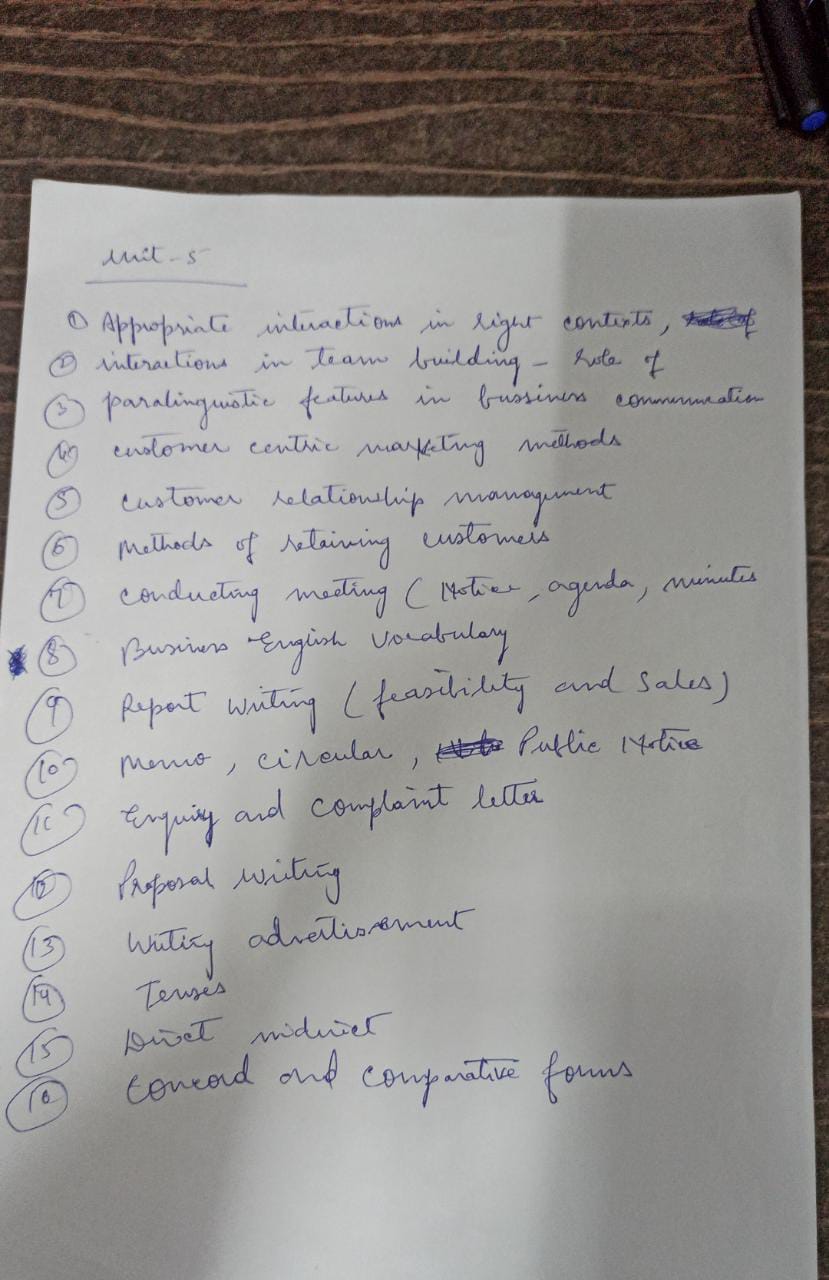 Unit - 5
① Appropriate interactions in right contexts,
② interactions in team building - role of
③ paralinguistic features in bussiness communication
④ customer centric marketing methods
⑤ customer relationship management
⑥ Methods of retaining customers
⑦ conducting meeting ( Notice, agenda, minutes
⑧ Business English Vocabulary
⑨ Report Writing ( feasibility and Sales )
⑩ Memo, circular, Public Notice
⑪ Enquiry and complaint letter
⑫ Proposal writing
⑬ Writing advertisement
⑭ Tenses
⑮ Direct indirect
⑯ Concord and comparative forms